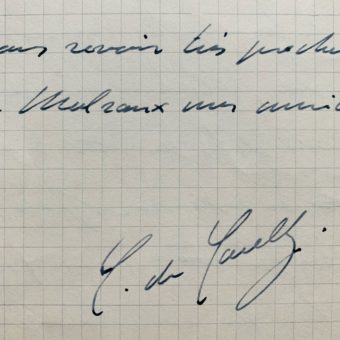 ous revoir très proche
Malraux mes amiti
de Gaulle.